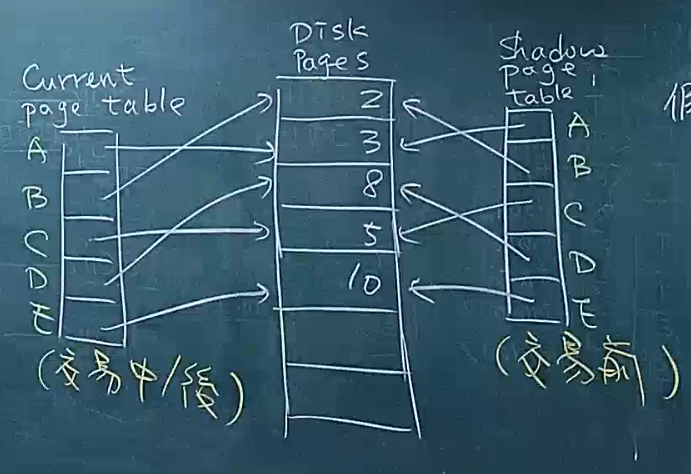 Current
page table
A
B
C
D
E
(交易中/後)
Disk
Pages
2
3
8
5
10
Shadow
page
table
A
B
C
D
E
(交易前)